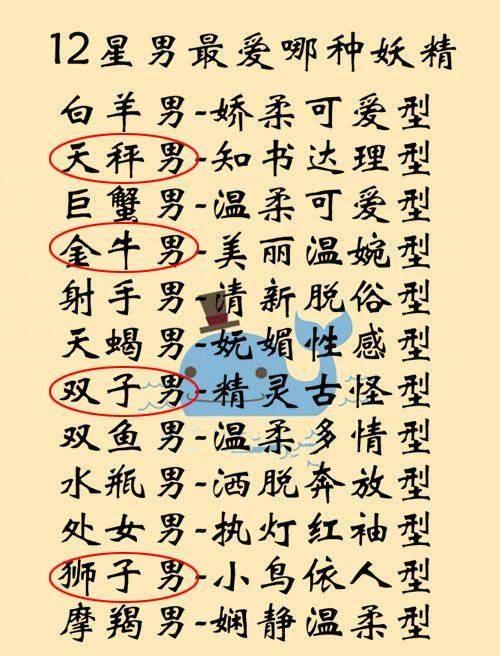 12星男最爱哪种妖精
白羊男-娇柔可爱型
天秤男-知书达理型
巨蟹男-温柔可爱型
金牛男-美丽温婉型
射手男-清新脱俗型
天蝎男-妩媚性感型
双子男-精灵古怪型
双鱼男-温柔多情型
水瓶男-洒脱奔放型
处女男-执灯红袖型
狮子男-小鸟依人型
摩羯男-娴静温柔型